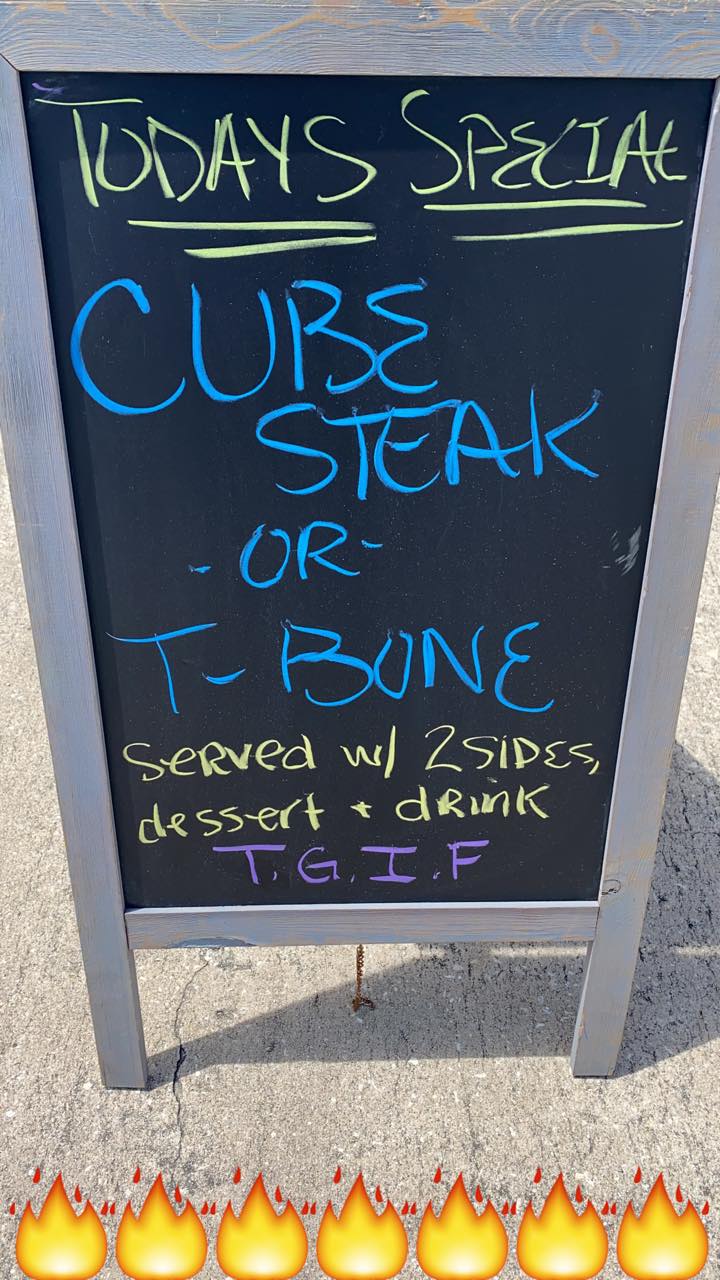 TODAYS SPECIAL
CUBE
STEAK
-OR-
T-BONE
Served w/ 2 SIDES,
dessert + drink
T.G.I.F